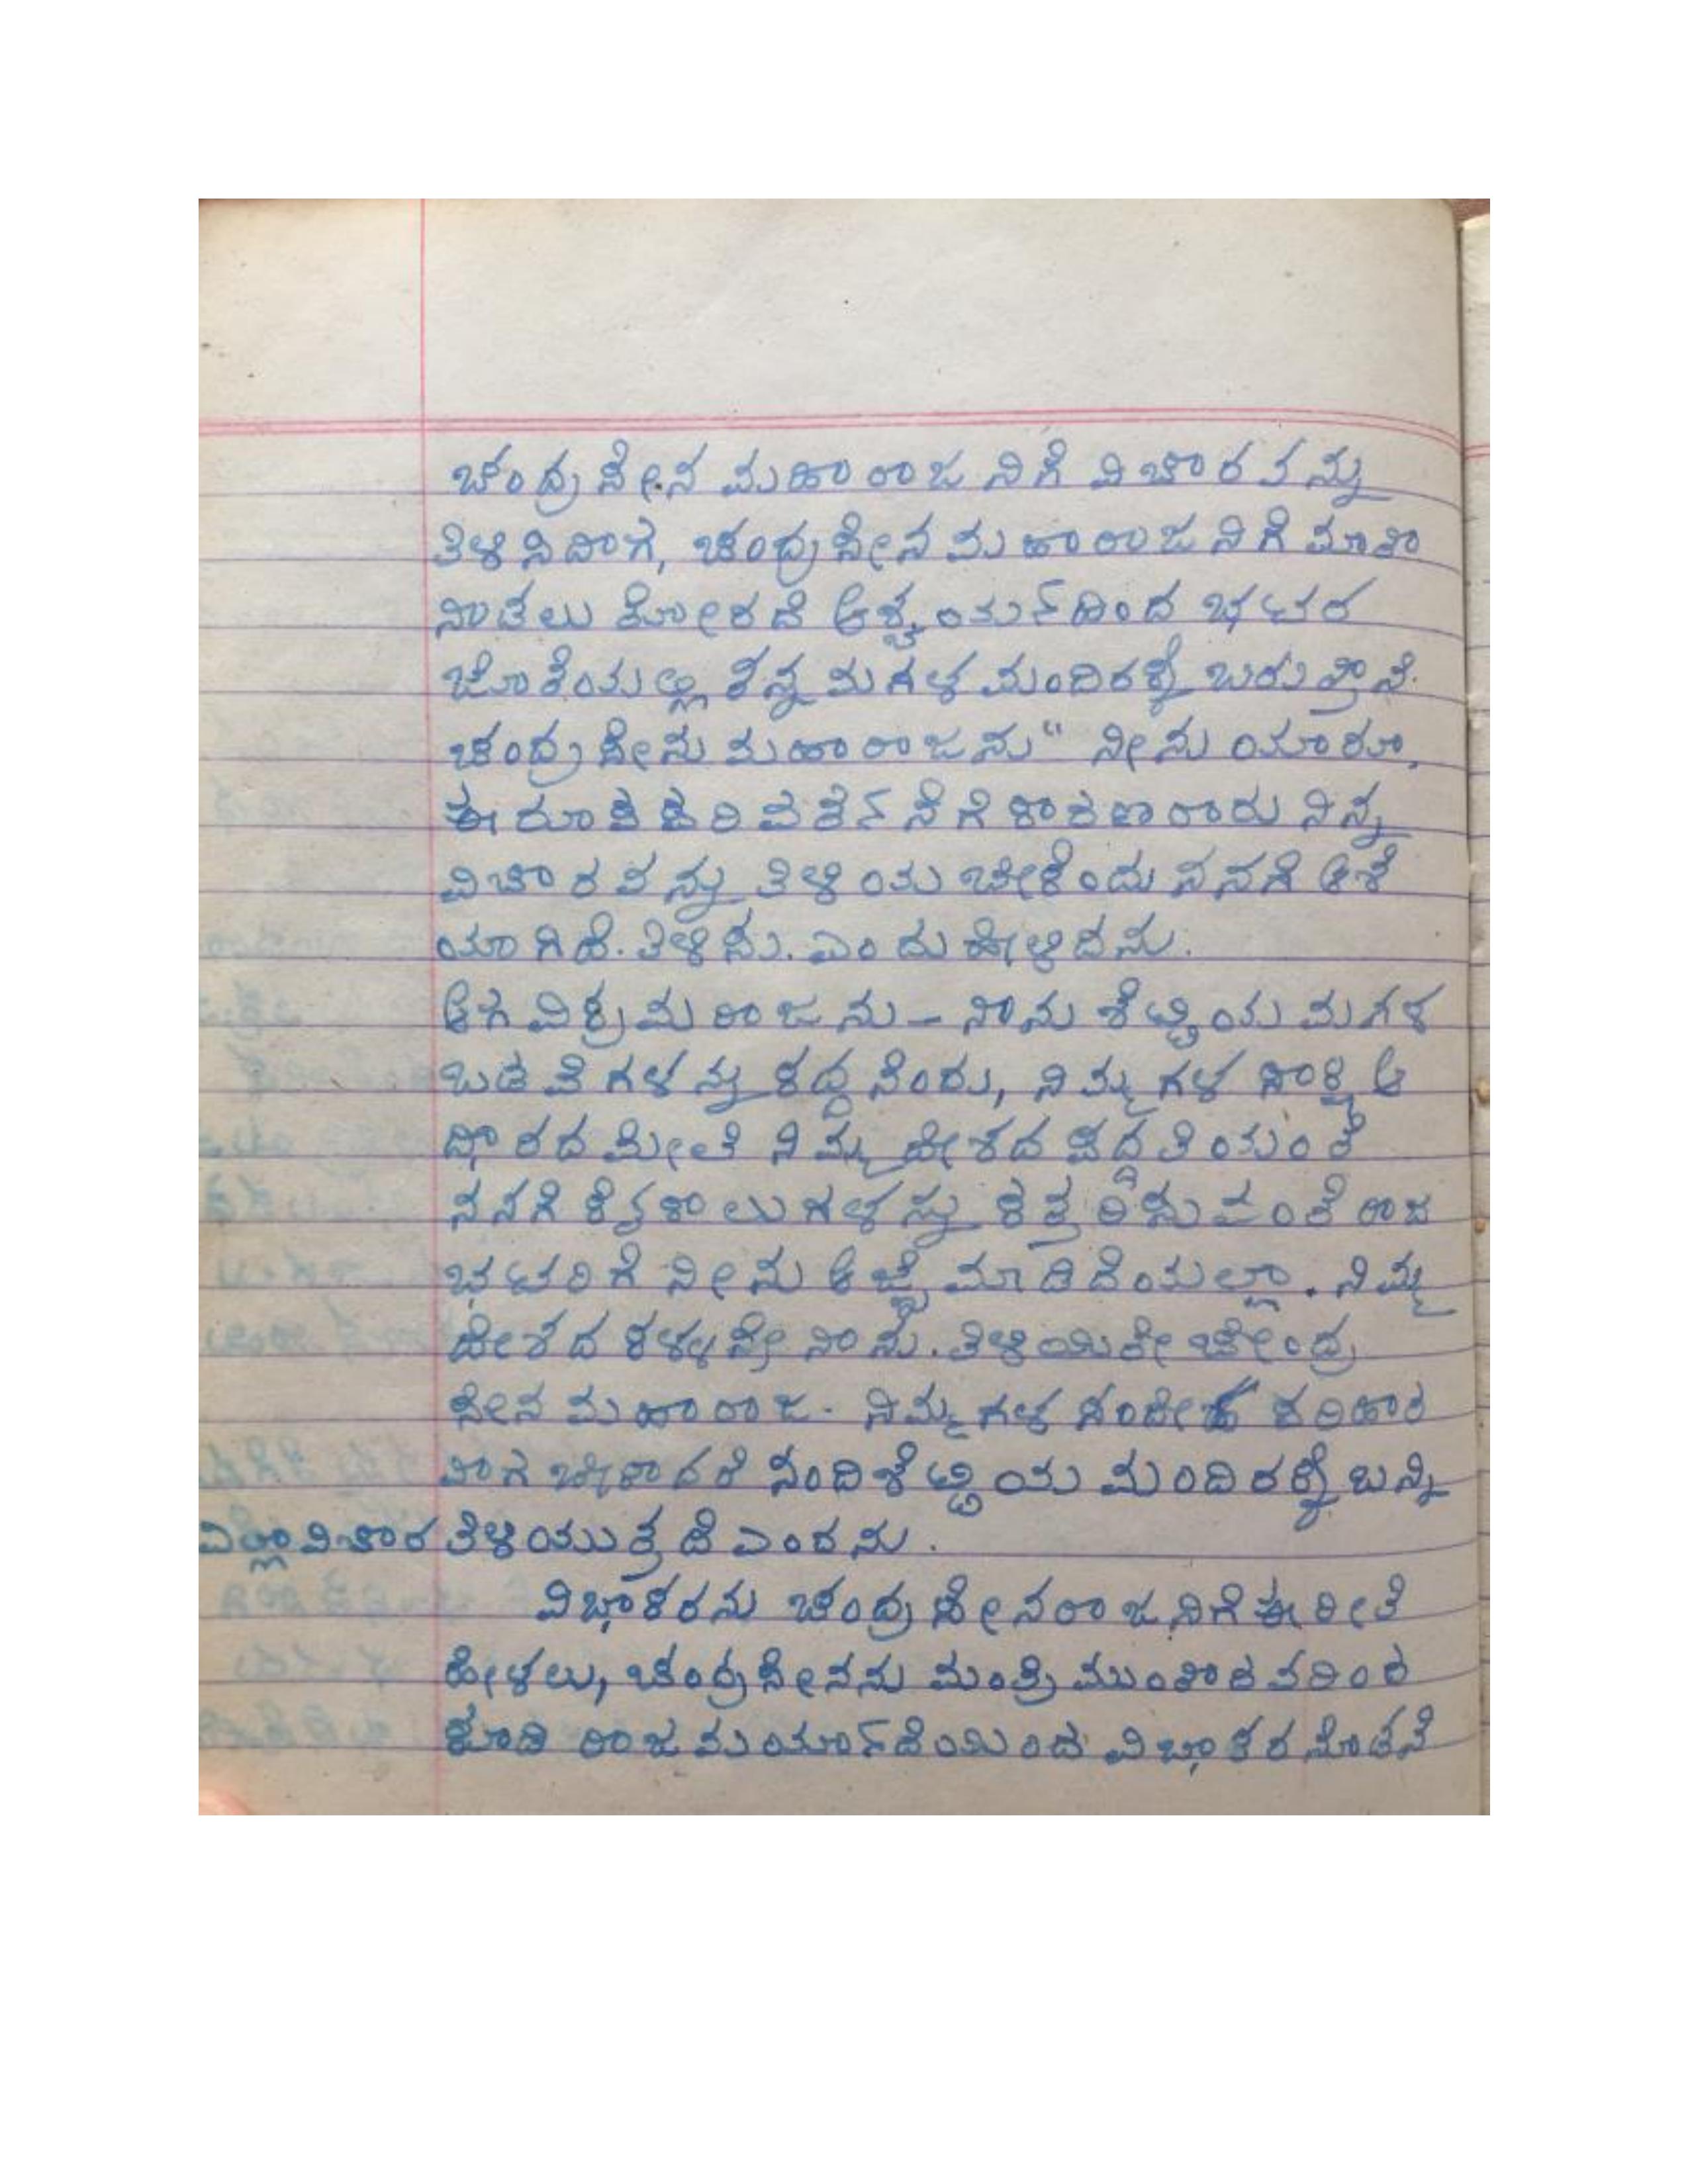 ಚಂದ್ರಸೇನ ಮಹಾರಾಜನಿಗೆ ವಿಚಾರವನ್ನು
ತಿಳಿಸಿದಾಗ, ಚಂದ್ರಸೇನ ಮಹಾರಾಜನಿಗೆ ಮಾತಾ
ನಾಡಲು ತೋರದೆ ಆಶ್ಚರ್ಯದಿಂದ ಭಟರ
ಜೊತೆಯಲ್ಲಿ ತನ್ನ ಮಗಳ ಮಂದಿರಕ್ಕೆ ಬರುತ್ತಾನೆ.
ಚಂದ್ರಸೇನು ಮಹಾರಾಜನು " ನೀನು ಯಾರೂ,
ಈ ರೂಪ ಪರಿವರ್ತನೆಗೆ ಕಾರಣರಾರು ನಿನ್ನ
ವಿಚಾರವನ್ನು ತಿಳಿಯಬೇಕೆಂದು ನನಗೆ ಆಶೆ
ಯಾಗಿದೆ. ತಿಳಿಸು. ಎಂದು ಹೇಳಿದನು.
ಆಗ ವಿಕ್ರಮರಾಜನು - ನಾನು ಶೆಟ್ಟಿಯ ಮಗಳ
ಒಡವೆಗಳನ್ನು ಕದ್ದನೆಂದು, ನಿಮ್ಮಗಳ ಸಾಕ್ಷಿ ಆ
ಧಾರದ ಮೇಲೆ ನಿಮ್ಮ ದೇಶದ ಪದ್ಧತಿಯಂತೆ
ನನಗೆ ಕೈಕಾಲುಗಳನ್ನು ಕತ್ತರಿಸುವಂತೆ ರಾಜ
ಭಟರಿಗೆ ನೀನು ಆಜ್ಞೆ ಮಾಡಿದೆಯಲ್ಲಾ. ನಿಮ್ಮ
ದೇಶದ ಕಳ್ಳನೇ ನಾನು. ತಿಳಿಯಿತೇ ಚೇಂದ್ರ
ಸೇನ ಮಹಾರಾಜ. ನಿಮ್ಮಗಳ ಸಂದೇಹ ಪರಿಹಾರ
ವಾಗಬೇಕಾದರೆ ನಂದಿಶೆಟ್ಟಿಯ ಮಂದಿರಕ್ಕೆ ಬನ್ನಿ
ಎಲ್ಲಾ ವಿಚಾರ ತಿಳಿಯುತ್ತದೆ ಎಂದನು.
ವಿಭಾಕರನು ಚಂದ್ರಸೇನರಾಜನಿಗೆ ಈ ರೀತಿ
ಹೇಳಲು, ಚಂದ್ರಸೇನನು ಮಂತ್ರಿ ಮುಂತಾದವರಿಂದ
ಕೂಡಿ ರಾಜ ಮರ್ಯಾದೆಯಿಂದ ವಿಭಾಕರನೊಡನೆ